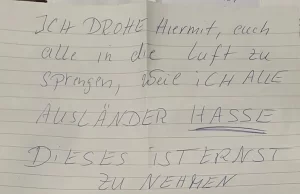 ICH DROHE Hiermit, euch
alle in die Luft zu
sprengen, weil ICH ALLE
AUSLÄNDER HASSE
DIESES IST ERNST
ZU NEHMEN